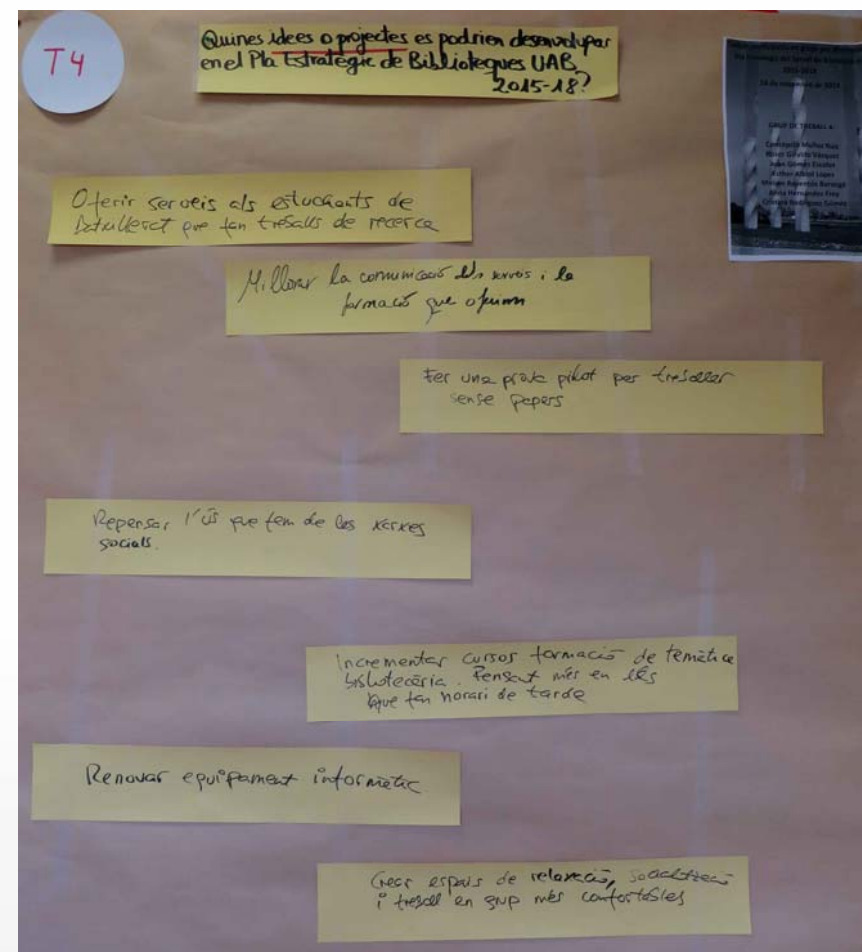 T4
Quines idees o projectes es podrien desenvolupar
en el Pla Estratègic de Biblioteques UAB
2015-18?
2015-2018
GRUP DE TREBALL 4:
Concepció Muñoz Ruiz
Joan Gómez Escofet
Cristina Rodríguez
Oferir serveis als estudiants de
Batxillerat que fan treballs de recerca
Millorar la comunicació dels serveis i la
formació que oferim
Fer una prova pilot per treballar
sense papers
Repensar l'ús que fem de les xarxes
socials.
Incrementar cursos formació de temàtica
bibliotecària. Pensant més en els
que fan horari de tarda
Renovar equipament informàtic
Crear espais de relaxació, socialització
i treball en grup més confortables